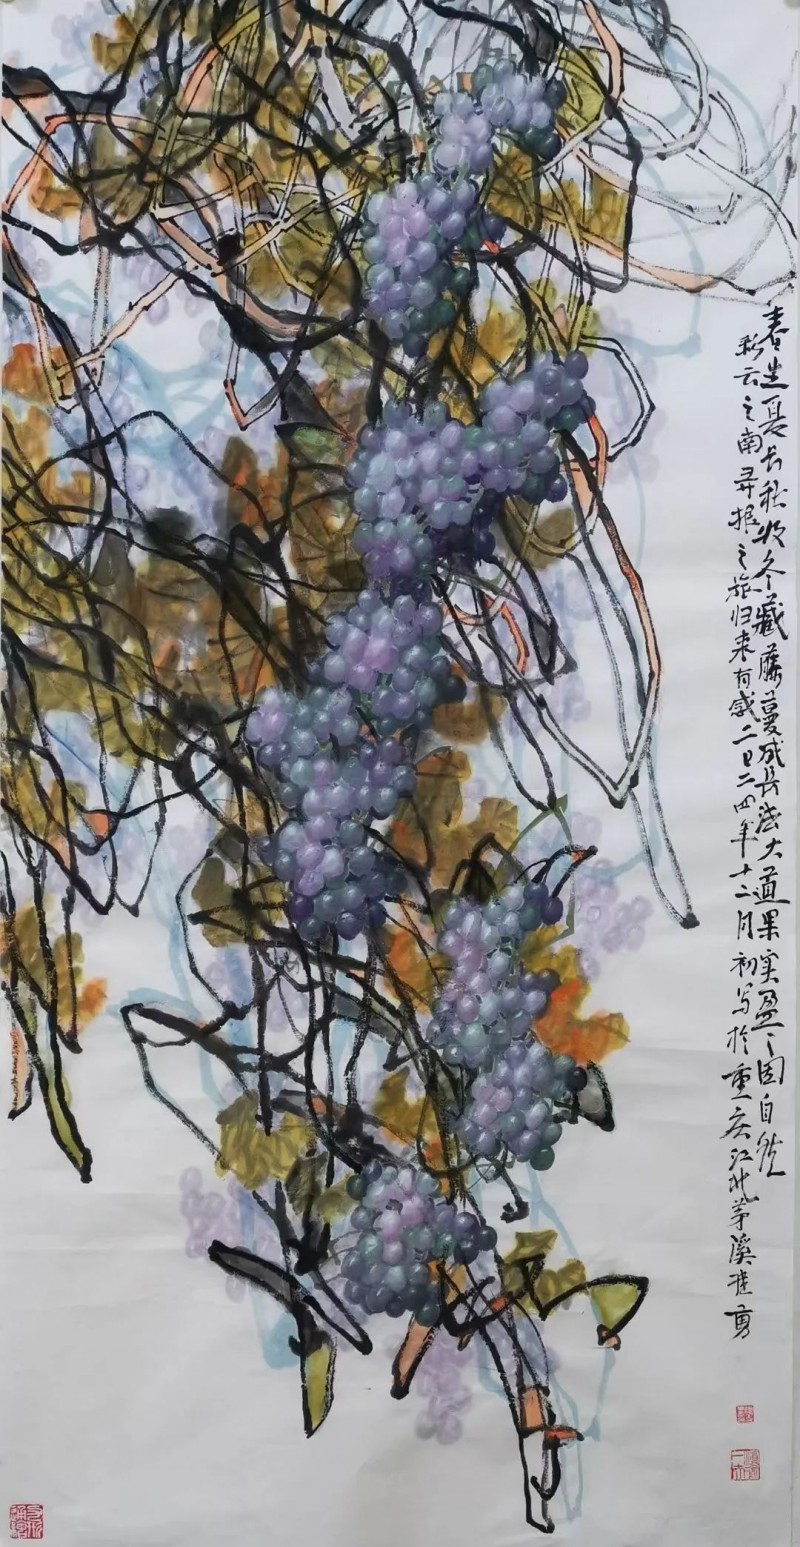 春生夏长秋收冬藏藤蔓成长法大道果实盈〻固自然
彩云之南寻根之旅归来有感二〇二四年十二月初写於重庆江北茅溪桂勇